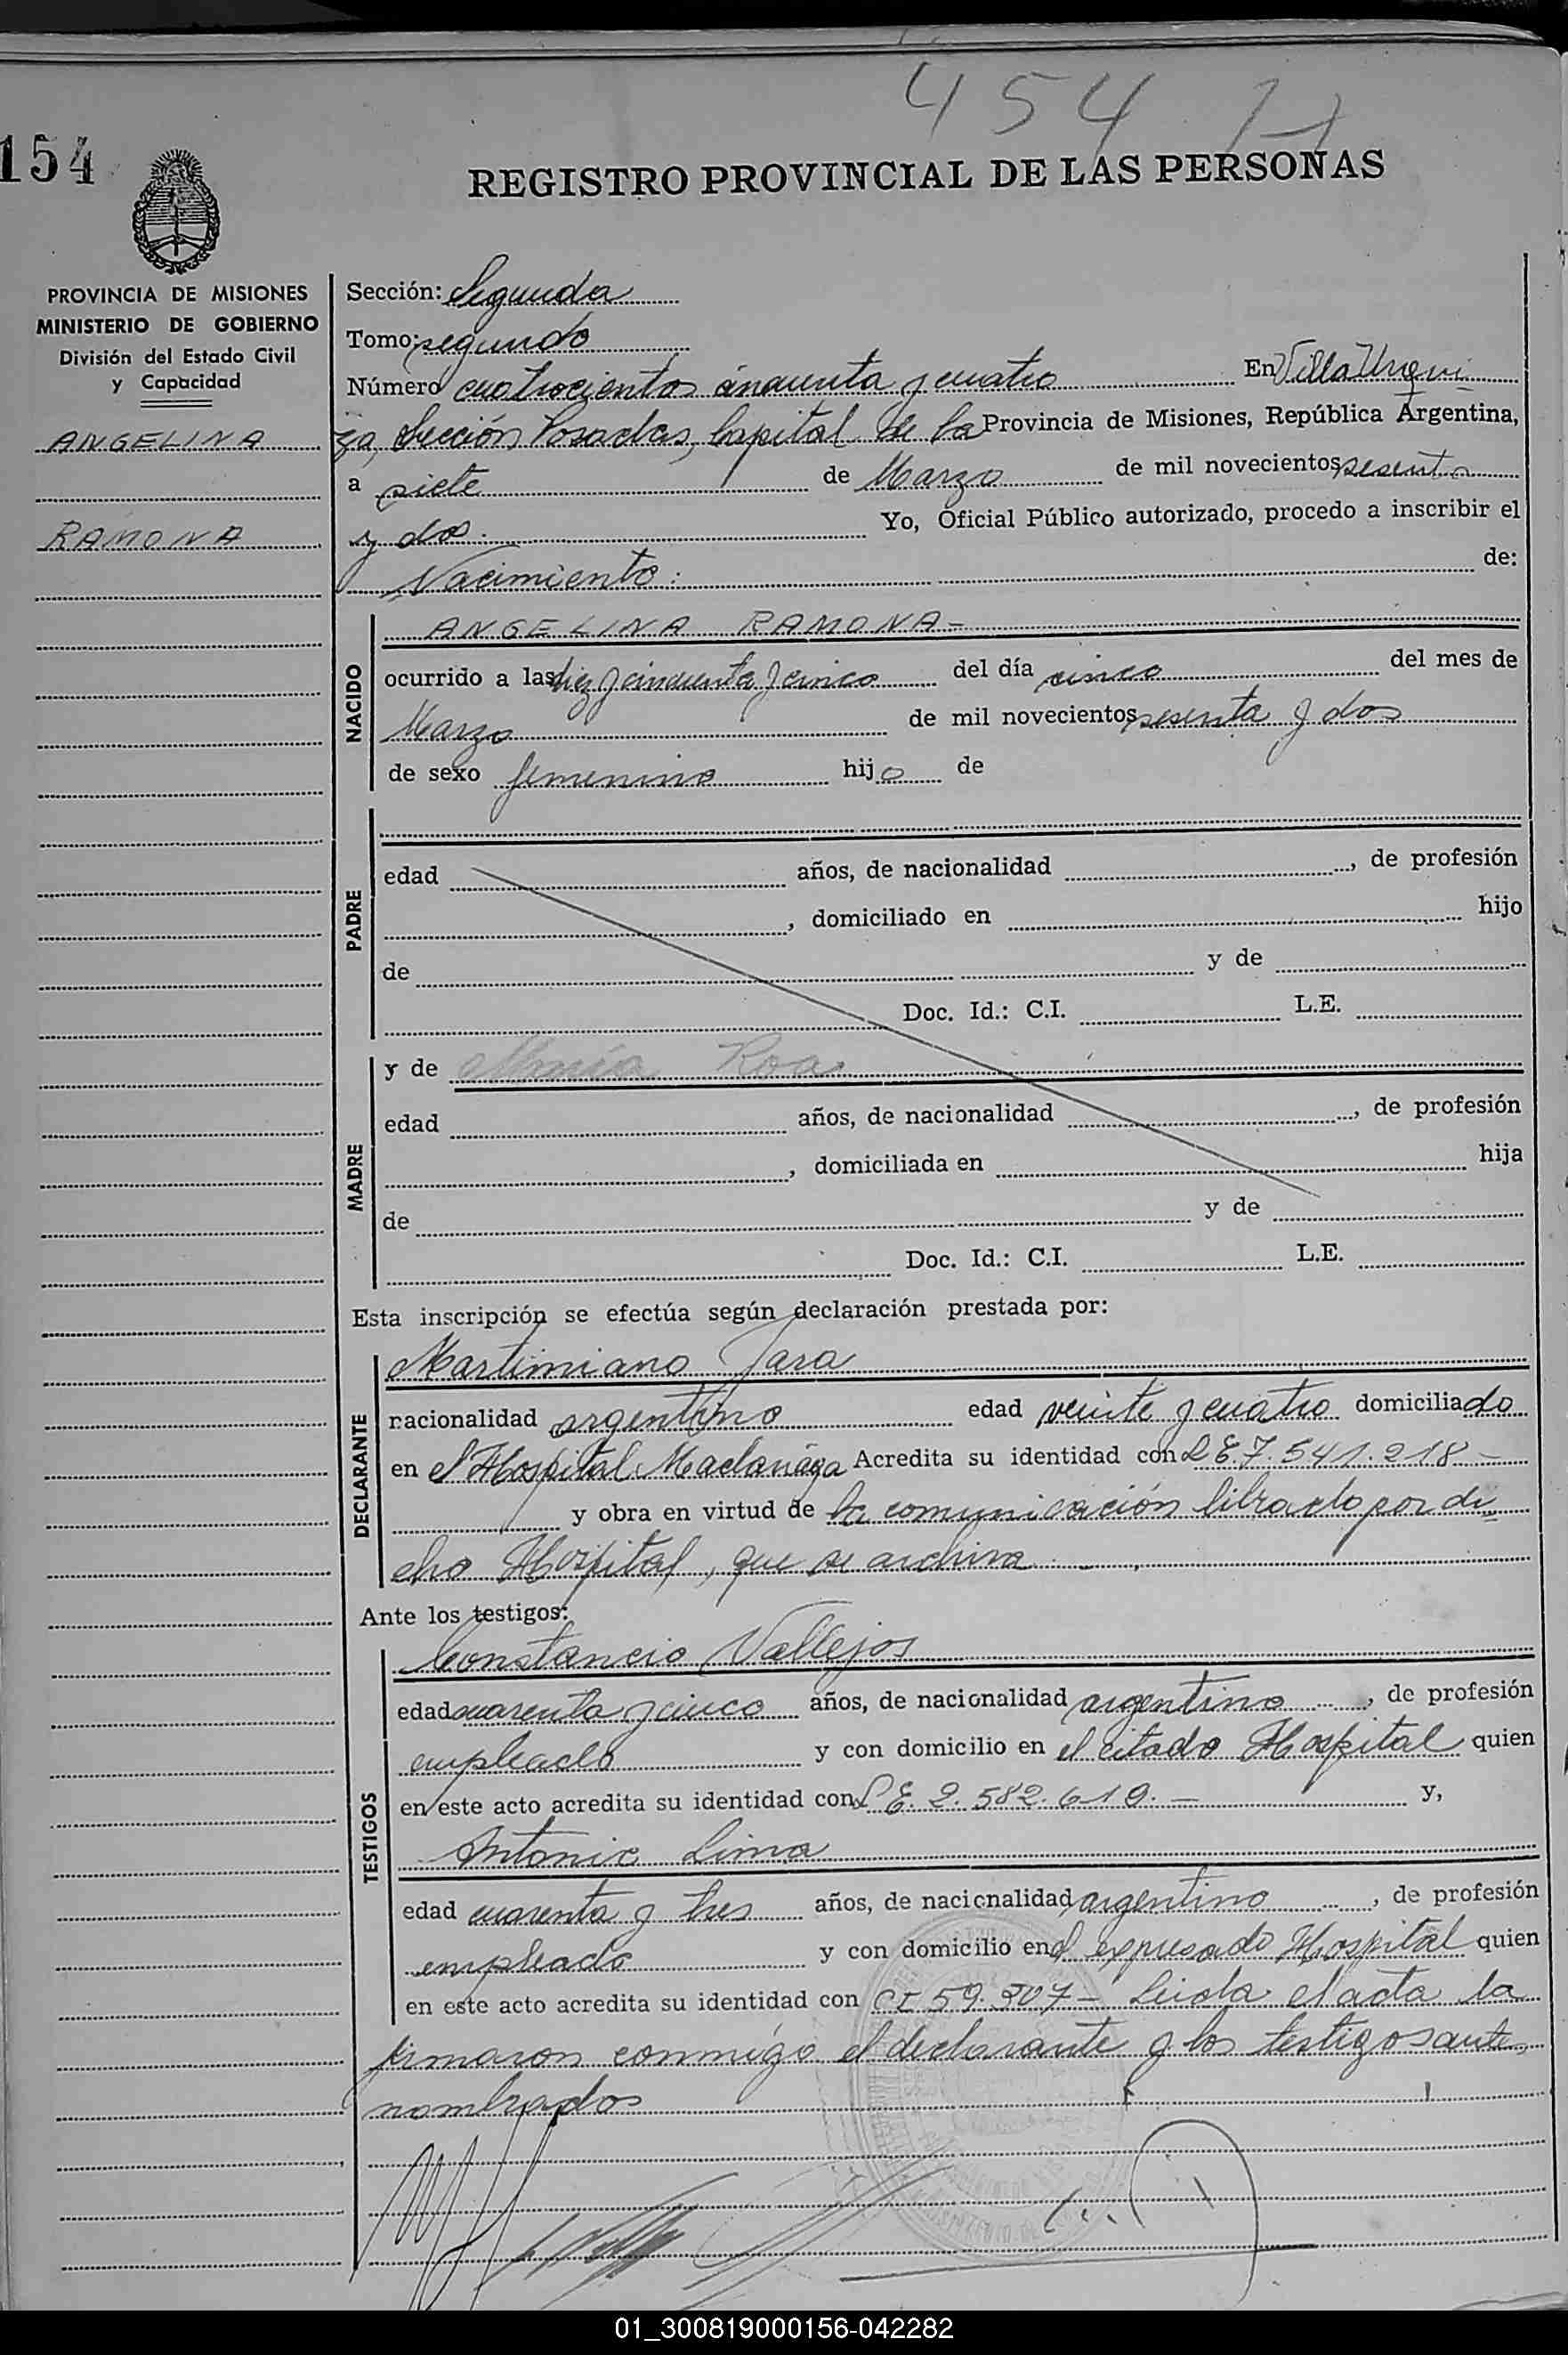 454
154
REGISTRO PROVINCIAL DE LAS PERSONAS
PROVINCIA DE MISIONES
MINISTERIO DE GOBIERNO
División del Estado Civil
y Capacidad
ANGELINA
RAMONA
Sección: Segunda
Tomo: segundo
Número cuatrocientos cincuenta y cuatro En Villa Urqui
za, Sección Posadas, Capital de la Provincia de Misiones, República Argentina,
a siete de Marzo de mil novecientos sesenta
y dos. Yo, Oficial Público autorizado, procedo a inscribir el
Nacimiento: de:
NACIDO
ANGELINA RAMONA-
ocurrido a las diez y cincuenta y cinco del día cinco del mes de
Marzo de mil novecientos sesenta y dos
de sexo femenino hijo de
PADRE
edad años, de nacionalidad , de profesión
, domiciliado en hijo
de y de
Doc. Id.: C.I. L.E.
MADRE
y de María Roa
edad años, de nacionalidad , de profesión
, domiciliada en hija
de y de
Doc. Id.: C.I. L.E.
Esta inscripción se efectúa según declaración prestada por:
DECLARANTE
Martimiano Jara
nacionalidad argentino edad veinte y cuatro domiciliado
en el Hospital Madariaga Acredita su identidad con L E. 7.541.218-
y obra en virtud de la comunicación librada por di
cho Hospital, que se archiva
Ante los testigos:
TESTIGOS
Constancio Vallejos
edad cuarenta y cinco años, de nacionalidad argentino , de profesión
empleado y con domicilio en el citado Hospital quien
en este acto acredita su identidad con L E. 2.582.619.- y,
Antonio Lima
edad cuarenta y tres años, de nacionalidad argentino , de profesión
empleado y con domicilio en el expresado Hospital quien
en este acto acredita su identidad con CI 59.307- Leida el acta la
firmaron conmigo el declarante y los testigos ante
nombrados
01_300819000156-042282